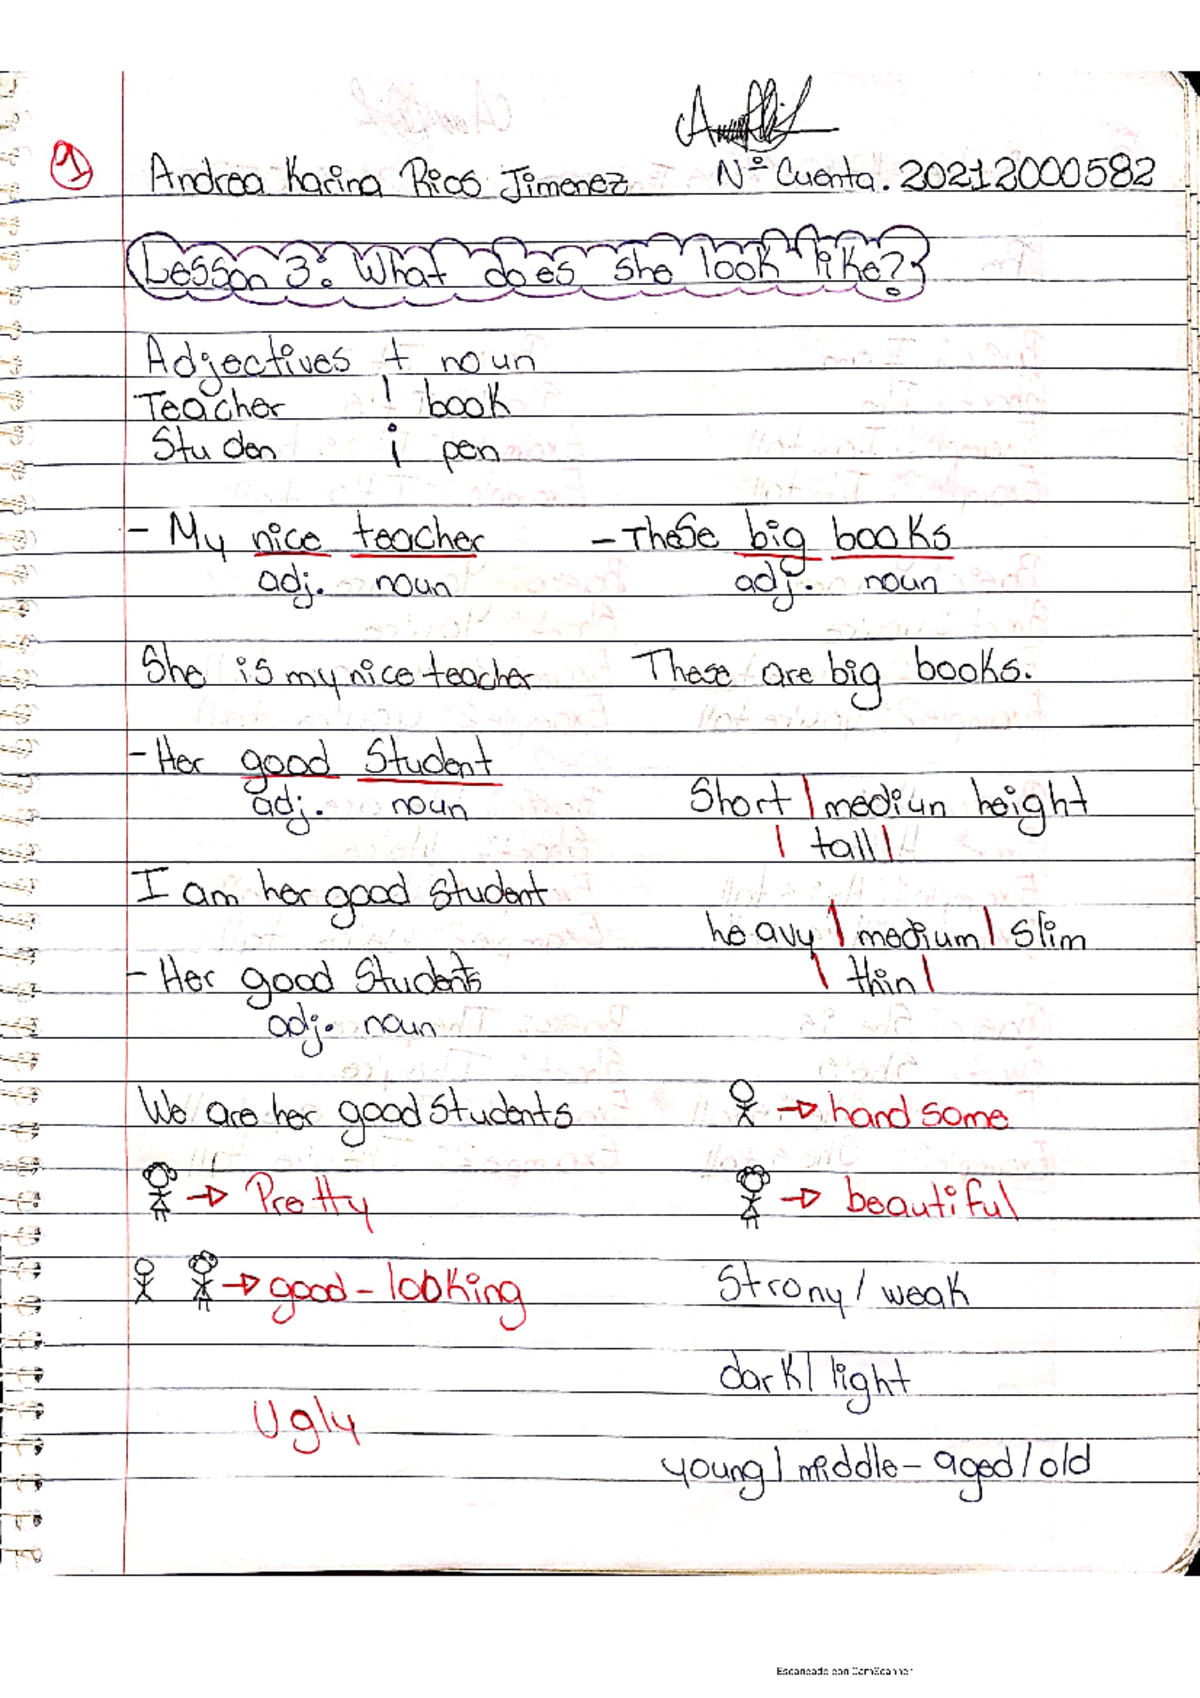 1
Andrea Karina Rios Jimenez Nº Cuenta. 20212000582
Lesson 3: What does she look like?
Adjectives + noun
Teacher ! book
Studen i pen
- My nice teacher - These big books
adj. noun adj. noun
She is my nice teacher These are big books.
- Her good Student
adj. noun
Short | mediun height
| tall |
I am her good student
heavy | medium | slim
- Her good Students
| thin |
adj. noun
We are her good students → handsome
→ Pretty → beautiful
→ good-looking Strony / weak
dark / light
Ugly
young / middle-aged / old
Escaneado con CamScanner